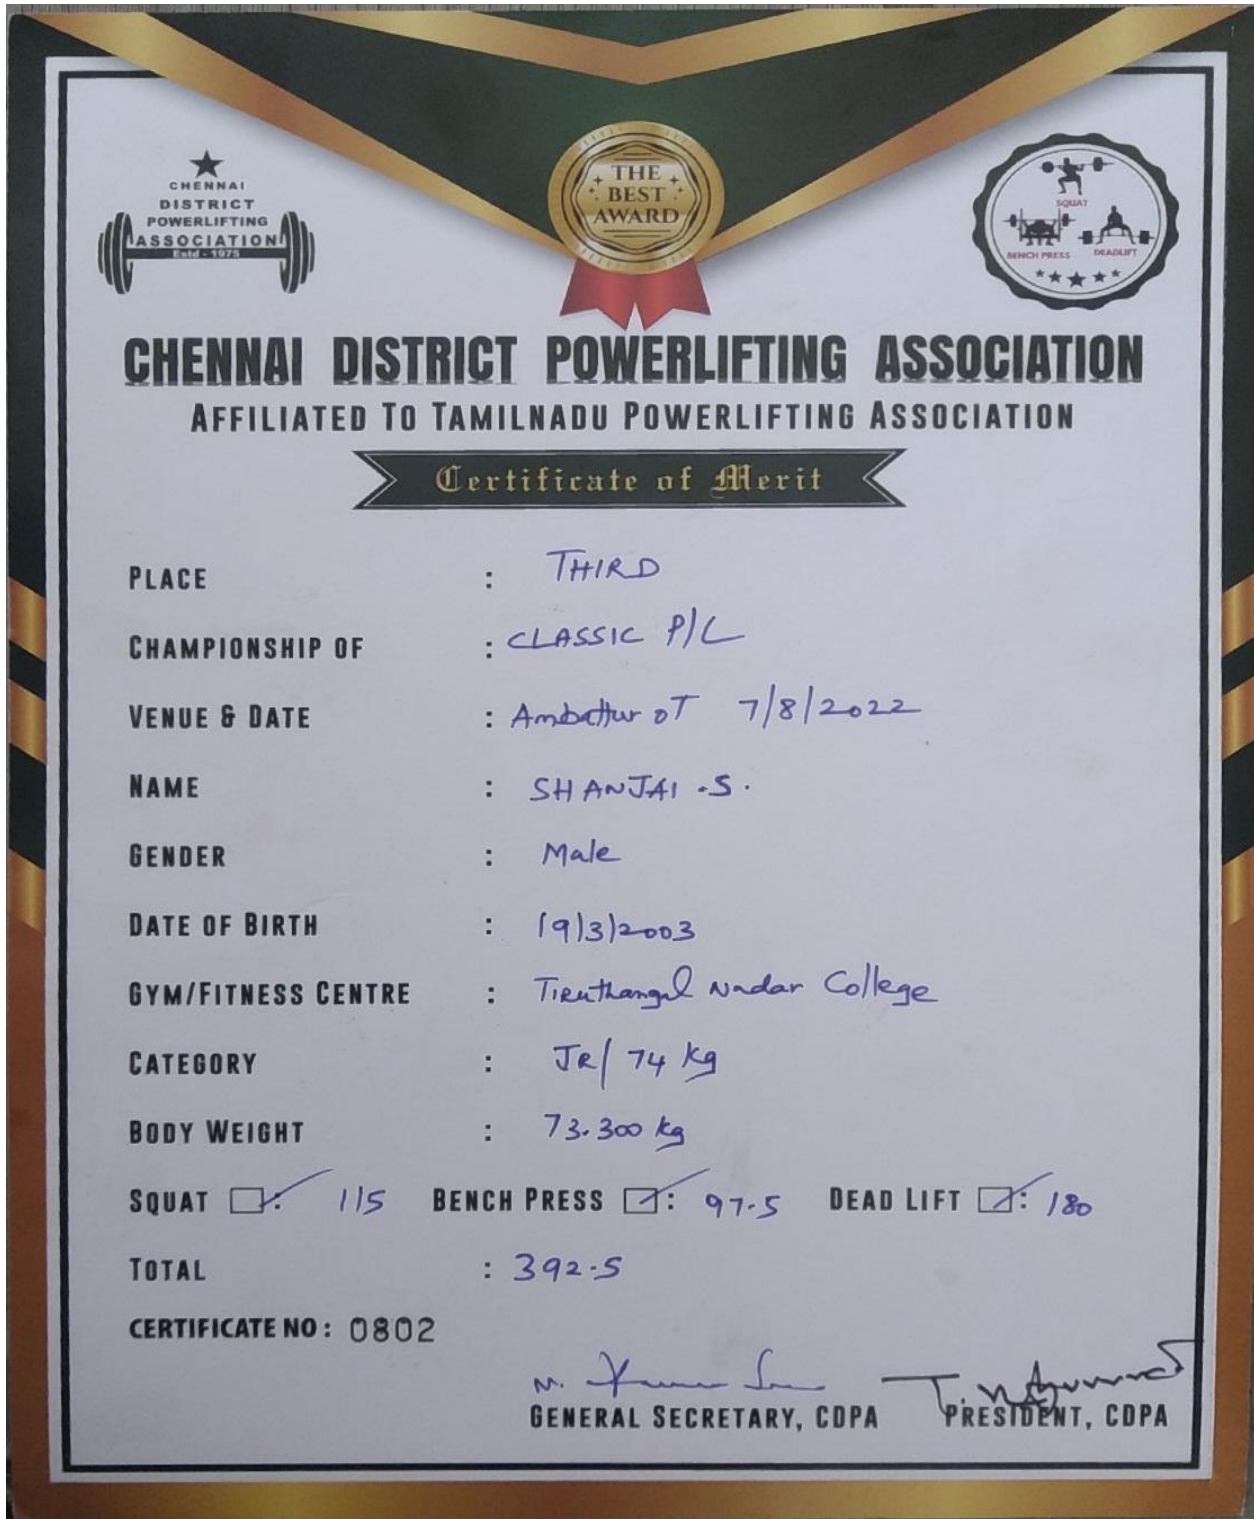 THE
BEST
AWARD
CHENNAI
DISTRICT
POWERLIFTING
ASSOCIATION
Estd - 1975
SQUAT
BENCH PRESS DEADLIFT
CHENNAI DISTRICT POWERLIFTING ASSOCIATION
AFFILIATED TO TAMILNADU POWERLIFTING ASSOCIATION
Certificate of Merit
PLACE : THIRD
CHAMPIONSHIP OF : CLASSIC P/L
VENUE & DATE : Ambattur OT 7/8/2022
NAME : SHANJAI .S.
GENDER : Male
DATE OF BIRTH : 19/3/2003
GYM/FITNESS CENTRE : Tiruthangal Nadar College
CATEGORY : JR/ 74 kg
BODY WEIGHT : 73.300 kg
SQUAT : 115 BENCH PRESS : 97.5 DEAD LIFT : 180
TOTAL : 392.5
CERTIFICATE NO : 0802
GENERAL SECRETARY, CDPA PRESIDENT, CDPA